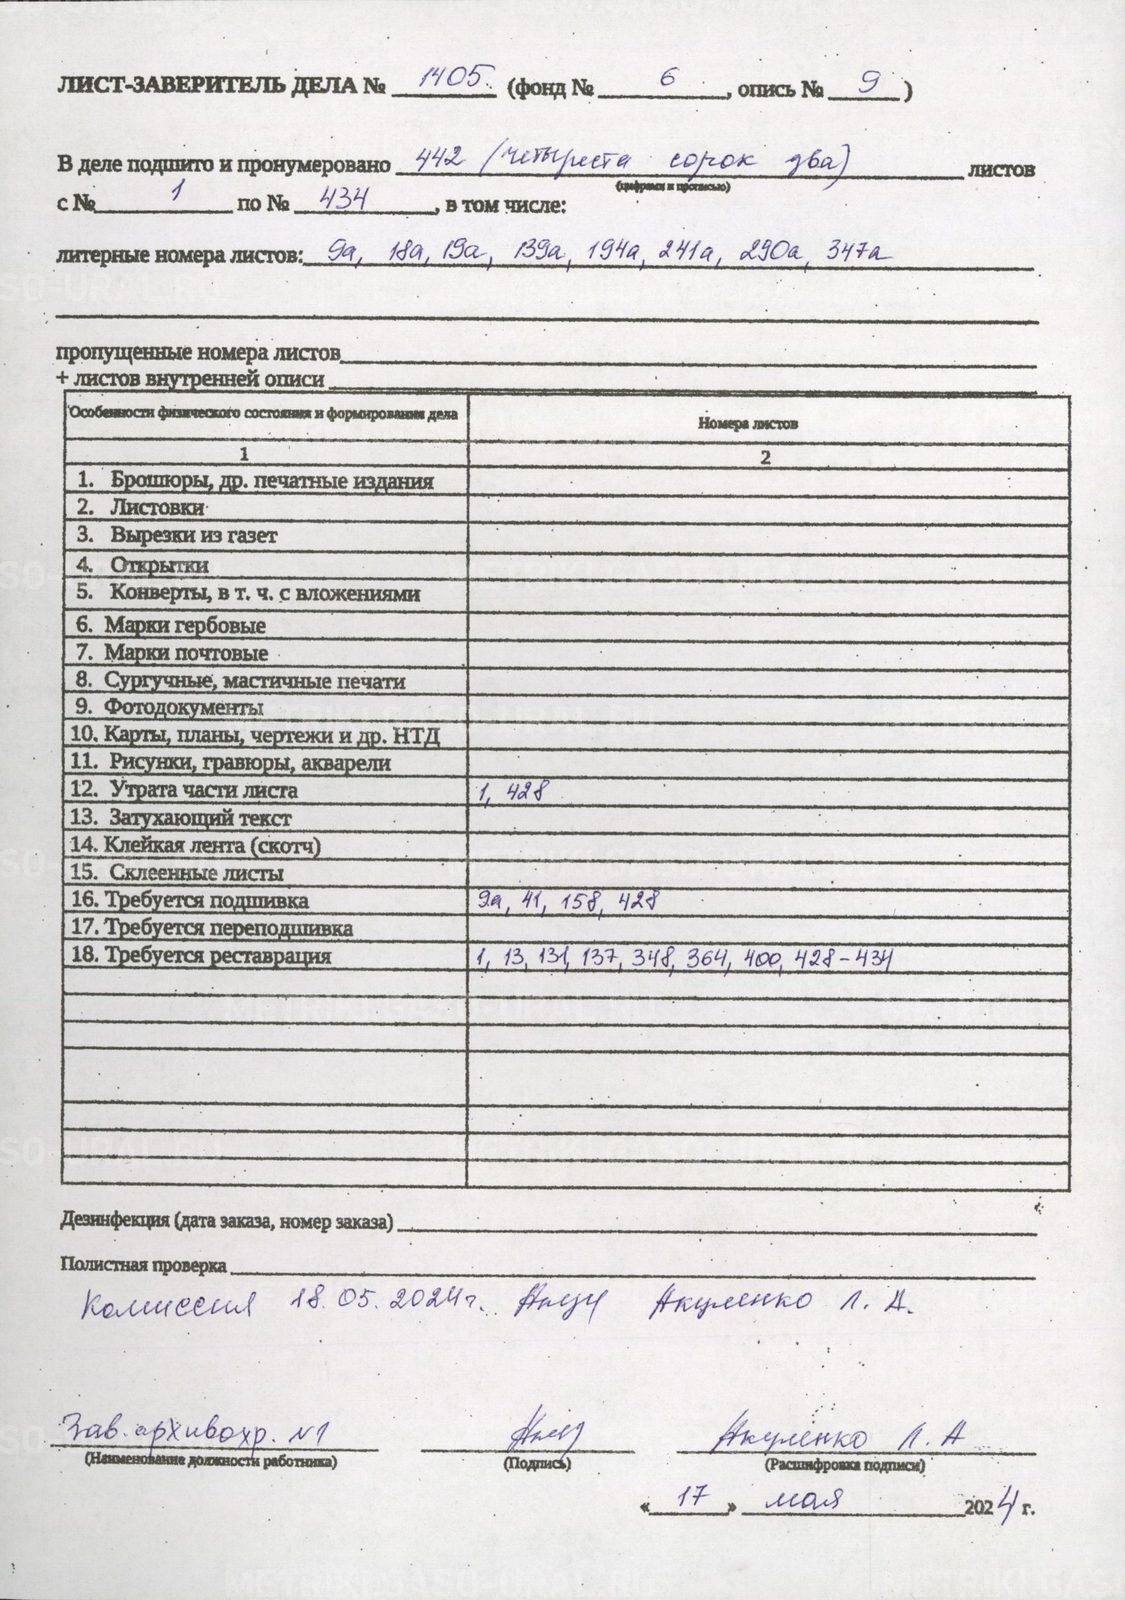 ЛИСТ-ЗАВЕРИТЕЛЬ ДЕЛА № 1405. (фонд № 6, опись № 9)
В деле подшито и пронумеровано 442 (четыреста сорок два) листов
(цифрами и прописью)
с № 1 по № 434, в том числе:
литерные номера листов: 9а, 18а, 19а, 139а, 194а, 241а, 290а, 347а
пропущенные номера листов
+ листов внутренней описи
Особенности физического состояния и формирования дела Номера листов
1 2
1. Брошюры, др. печатные издания
2. Листовки
3. Вырезки из газет
4. Открытки
5. Конверты, в т. ч. с вложениями
6. Марки гербовые
7. Марки почтовые
8. Сургучные, мастичные печати
9. Фотодокументы
10. Карты, планы, чертежи и др. НТД
11. Рисунки, гравюры, акварели
12. Утрата части листа 1, 428
13. Затухающий текст
14. Клейкая лента (скотч)
15. Склеенные листы
16. Требуется подшивка 9а, 41, 158, 428
17. Требуется переподшивка
18. Требуется реставрация 1, 13, 131, 137, 348, 364, 400, 428-434
Дезинфекция (дата заказа, номер заказа)
Полистная проверка
Комиссия 18.05.2024г. Акуленко Л. А.
Зав. архивохр. №1 Акуленко Л. А
(Наименование должности работника) (Подпись) (Расшифровка подписи)
« 17 » мая 2024 г.